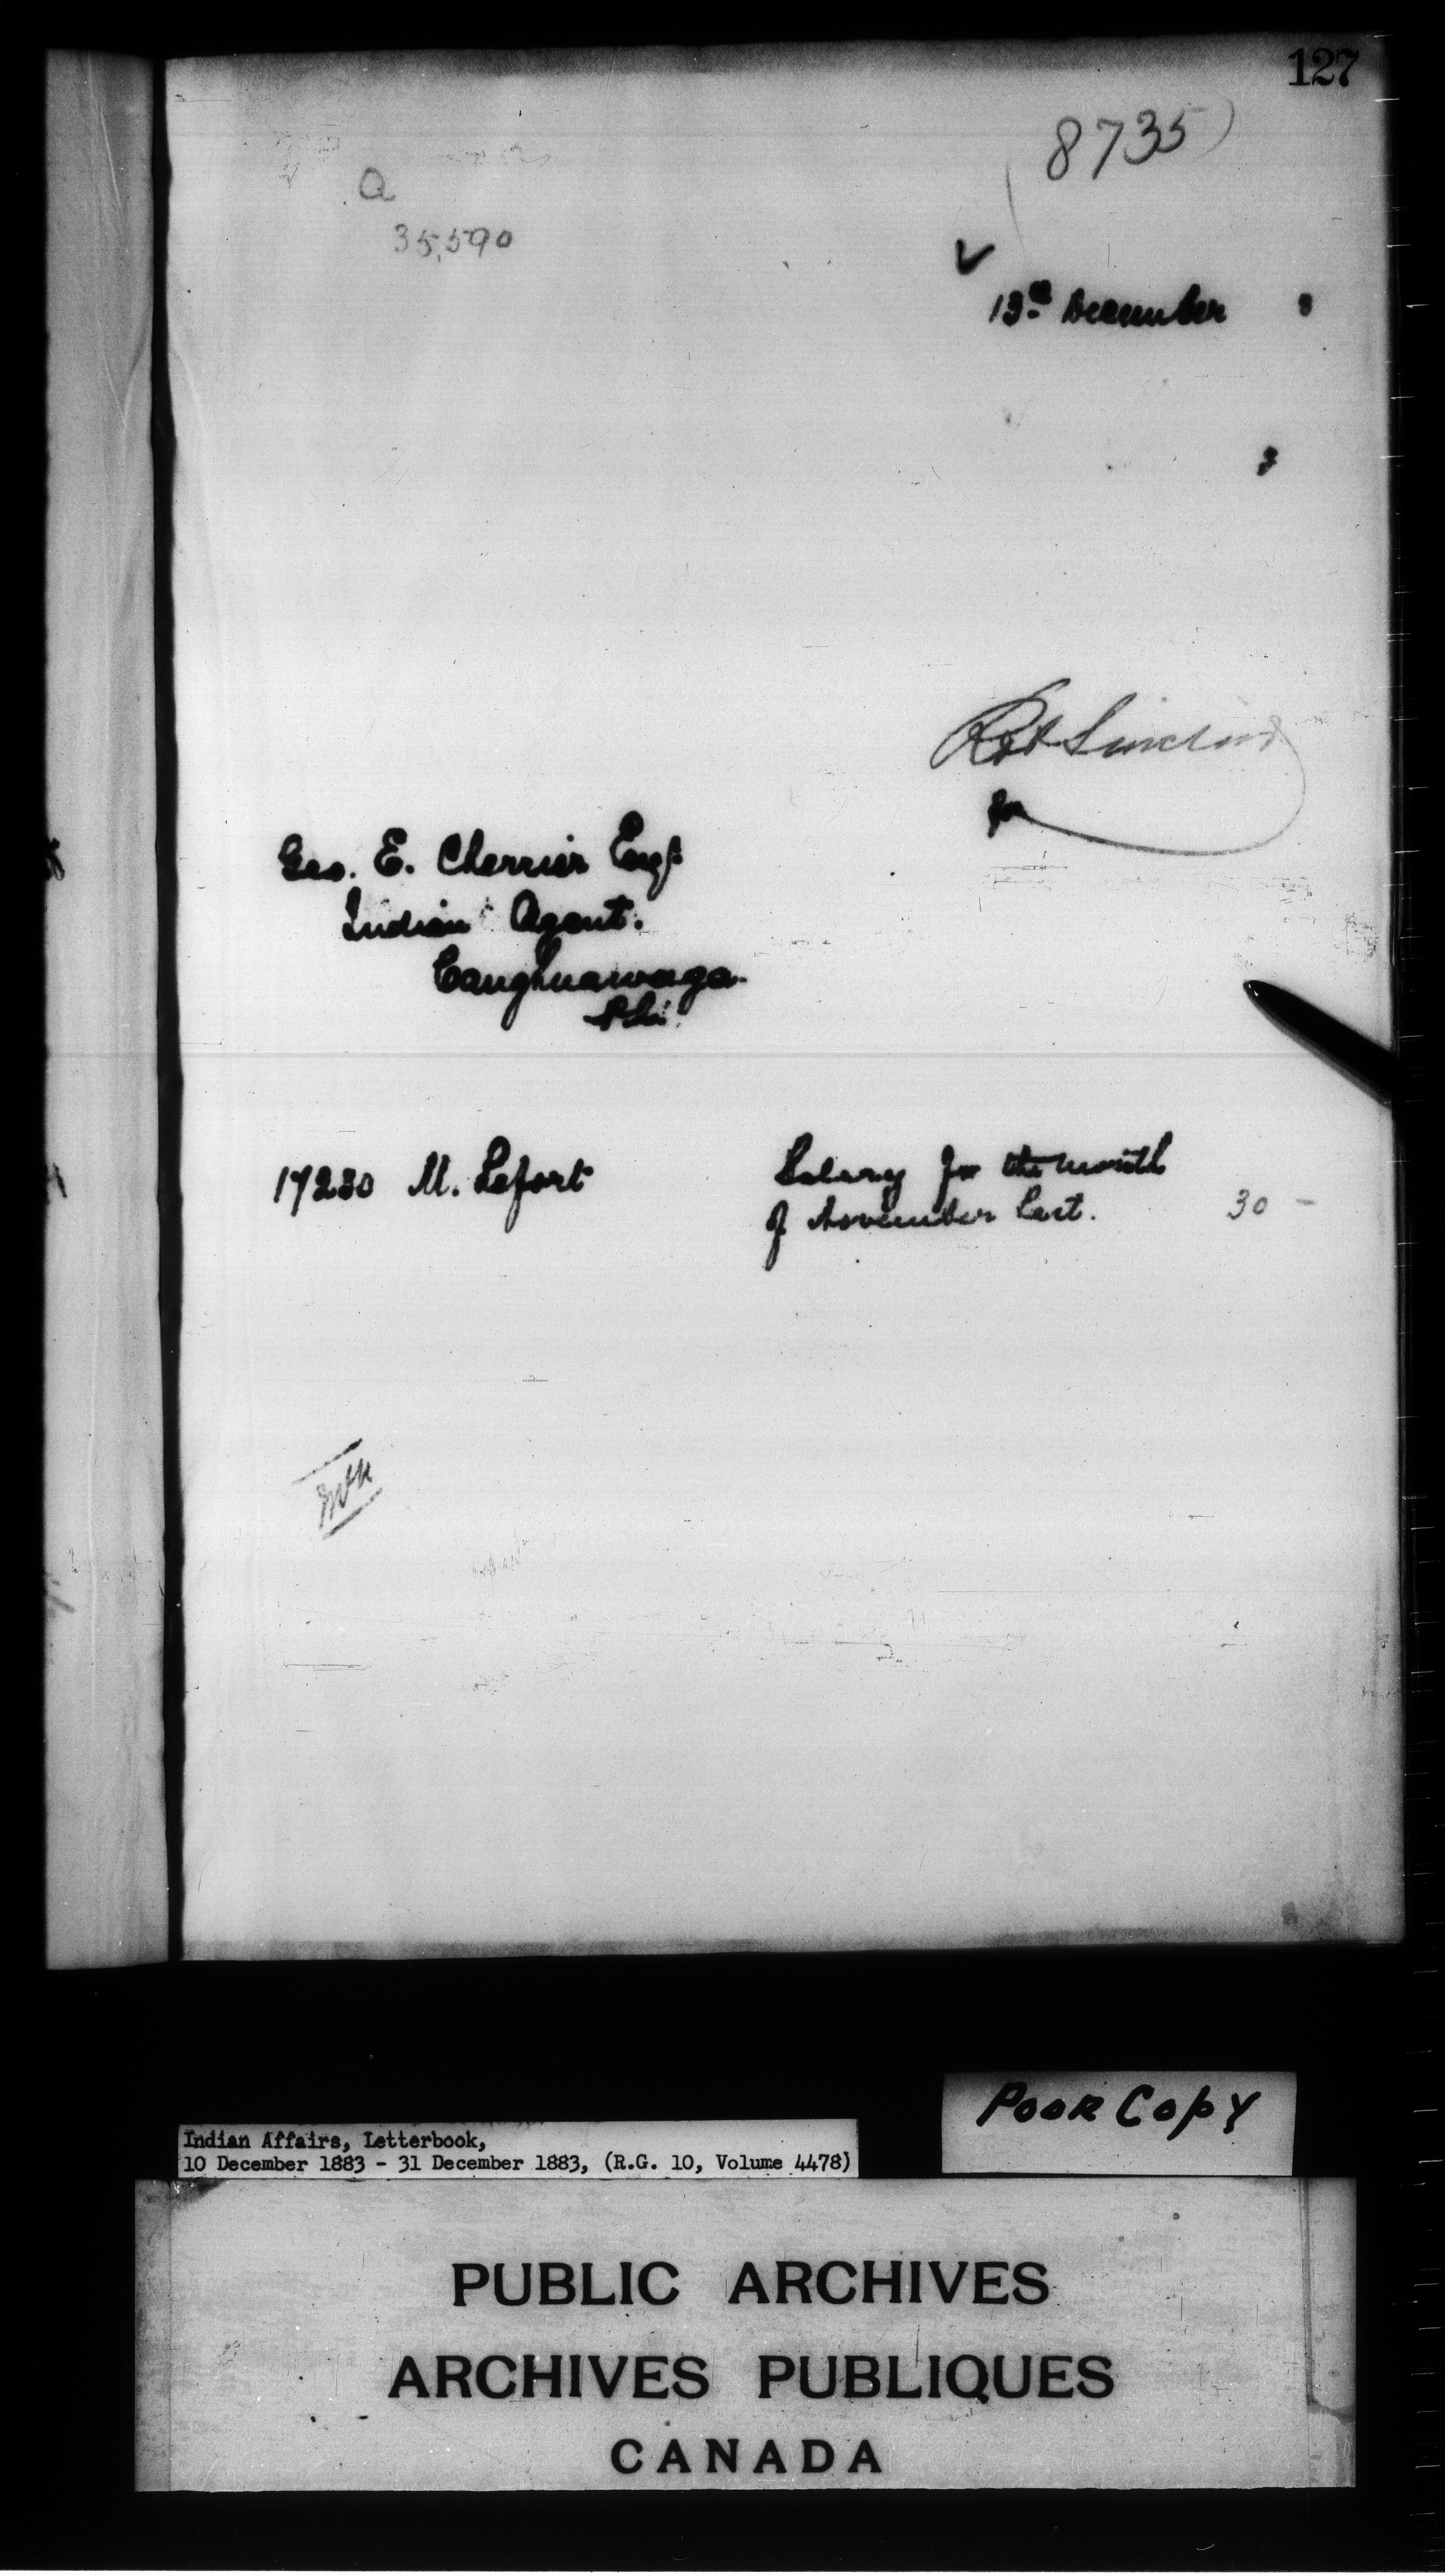 127
8735
a
35,590
13th December 3
3
Robt Sinclair
for
Geo. E. Cherrier Esqr
Indian Agent.
Caughnawaga.
P. Q.
17230 M. Lefort Salary for the month
of November last. 30 -
Poor Copy
Indian Affairs, Letterbook,
10 December 1883 - 31 December 1883, (R.G. 10, Volume 4478)
PUBLIC ARCHIVES
ARCHIVES PUBLIQUES
CANADA